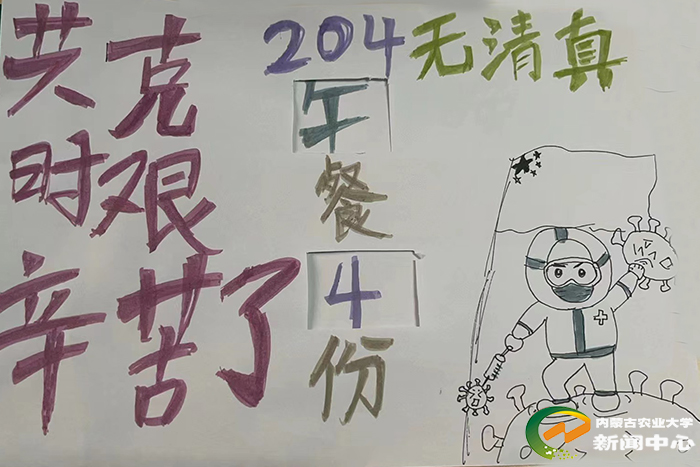 共克
时艰
辛苦了
204无清真
午
餐
4
份
内蒙古农业大学
新闻中心